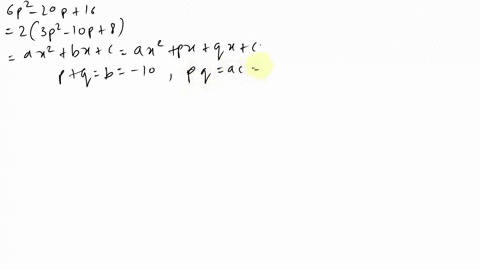 6p²-20p+16
= 2(3p²-10p+8)
= ax²+bx+c = ax²+px+qx+c.
p+q=b=-10 , pq=ac=